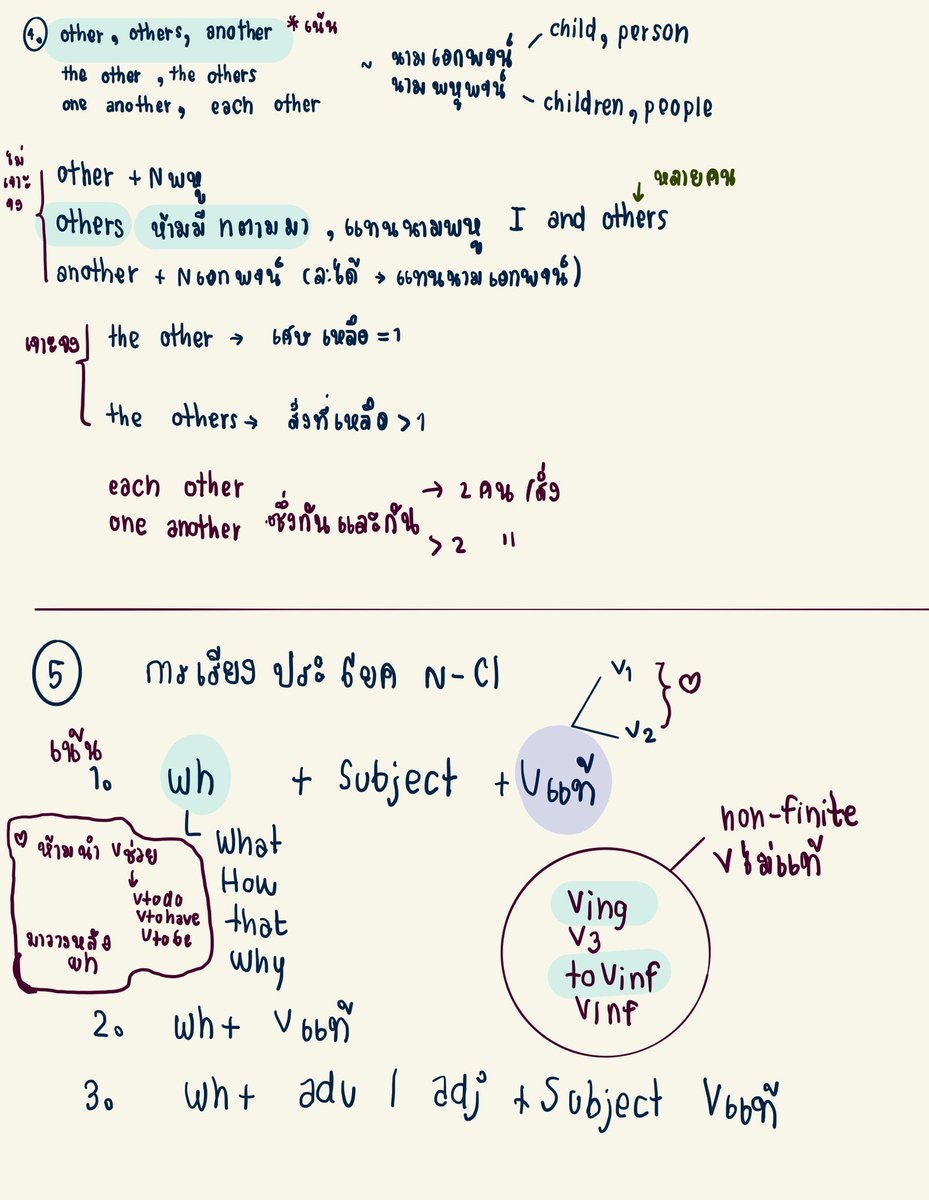 4. other, others, another *เน้น
the other, the others
one another, each other
~ นามเอกพจน์ child, person
นามพหูพจน์ children, people
ไม่เจาะจง
other + Nพหู
หลายคน
others ห้ามมี n ตามมา, แทนนามพหู I and others
another + Nเอกพจน์ (ละได้ → แทนนามเอกพจน์)
เจาะจง
the other → เศษเหลือ = 1
the others → สิ่งที่เหลือ > 1
each other → 2 คน/สิ่ง
ซึ่งกันและกัน
one another > 2 "
5 การเรียงประโยค N-Cl
V1
V2
เน้น
1. wh + Subject + Vแท้
What
How
that
Why
ห้ามนำ vช่วย
vtodo
vtohave
vtobe
มาวางหลัง
wh
non-finite
vไม่แท้
Ving
V3
toVinf
Vinf
2. wh + Vแท้
3. wh + adv / adj + Subject Vแท้